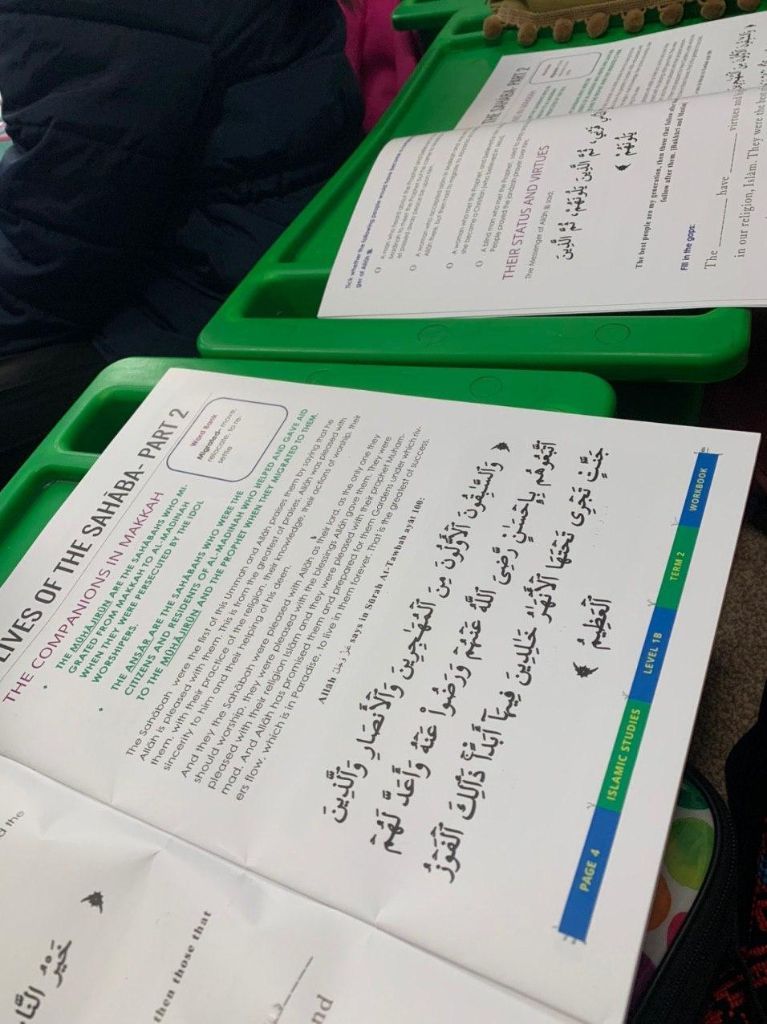 LIVES OF THE SAHĀBA- PART 2
THE COMPANIONS IN MAKKAH
Word Bank
Migrated- move,
relocate, to re-
settle
THE MŪHĀJIRŪN ARE THE SAHĀBAHS WHO MI-
GRATED FROM MAKKAH TO AL-MADINAH
WHEN THEY WERE PERSECUTED BY THE IDOL
WORSHIPERS.
THE ANSĀR ARE THE SAHĀBAHS WHO WERE THE
CITIZENS AND RESIDENTS OF AL-MADINAH WHO HELPED AND GAVE AID
TO THE MŪHĀJIRŪN AND THE PROPHET WHEN THEY MIGRATED TO THEM.
The Sahābah were the first of this Ummah and Allāh praises them by saying that he
Allāh is pleased with them. This is from the greatest of praises. Allāh was pleased with
them, with their practice of the religion, their knowledge, their actions of worship, their
sincerity to him and their helping of his deen.
And they the Sahābah were pleased with Allāh as their lord, as the only one they
should worship, they were pleased with the blessings Allāh gave them. They were
pleased with their religion Islām and they were pleased with their prophet Muham-
mad. And Allāh has promised them and prepared for them Gardens under which riv-
ers flow, which is in Paradise, to live in them forever. That is the greatest of success.
Allāh عز وجل says in Sūrah At-Tawbah ayāt 100:
﴿ وَٱلسَّٰبِقُونَ ٱلْأَوَّلُونَ مِنَ ٱلْمُهَٰجِرِينَ وَٱلْأَنصَارِ وَٱلَّذِينَ
ٱتَّبَعُوهُم بِإِحْسَٰنٍ رَّضِىَ ٱللَّهُ عَنْهُمْ وَرَضُوا۟ عَنْهُ وَأَعَدَّ لَهُمْ
جَنَّٰتٍ تَجْرِى تَحْتَهَا ٱلْأَنْهَٰرُ خَٰلِدِينَ فِيهَآ أَبَدًا ذَٰلِكَ ٱلْفَوْزُ
ٱلْعَظِيمُ ﴾
PAGE 4 ISLAMIC STUDIES LEVEL 1B TERM 2 WORKBOOK
the
خَيْرُ
then those that
nd
THE SAHĀBA- PART 2
Tick whether the following people
ger of Allāh
THEIR STATUS AND VIRTUES
The Messenger of Allāh ﷺ said:
قَرْنِي، ثُمَّ الَّذِينَ يَلُونَهُمْ، ثُمَّ الَّذِينَ
يَلُونَهُمْ ﴾
The best people are my generation, then those that follow
follow after them. [Bukhāri and
Fill in the gaps:
The ______ have ______ virtues and
in our religion, Islam. They were the